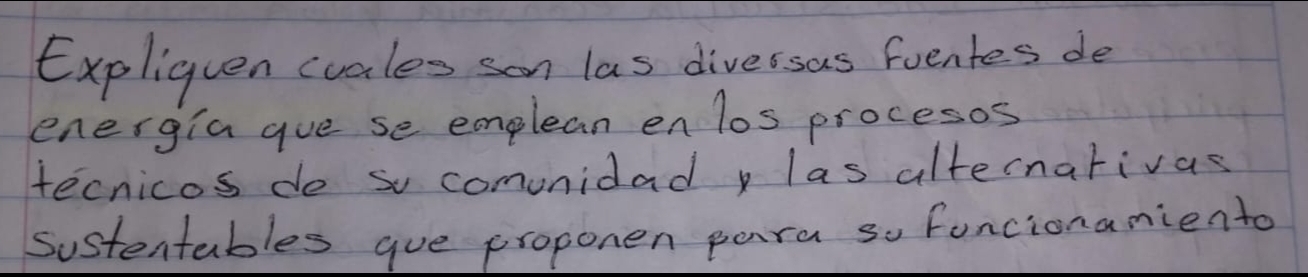 Expliquen cuales son las diversas fuentes de
energía que se emplean en los procesos
técnicos de su comunidad y las alternativas
sustentables que proponen para su funcionamiento